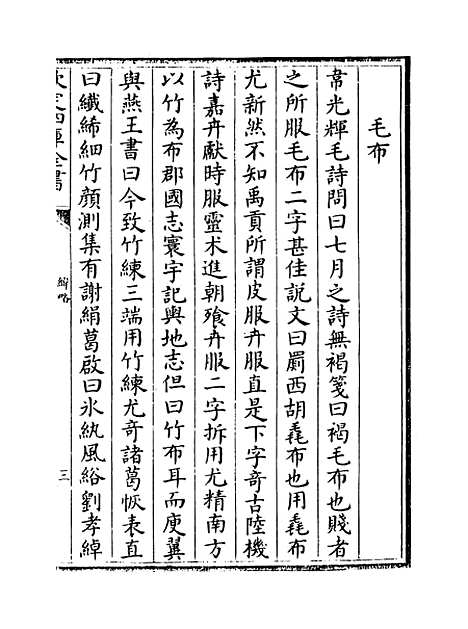 毛布
韋光輝毛詩問曰七月之詩無褐箋曰褐毛布也賤者
之所服毛布二字甚佳説文曰罽西胡毳布也用毳布
尤新然不知禹貢所謂皮服卉服直是下字竒古陸機
詩嘉卉獻時服靈术進朝飱卉服二字拆用尤精南方
以竹為布郡國志寰宇記輿地志但曰竹布耳而庾翼
與燕王書曰今致竹練三端用竹練尤竒諸葛恢表直
曰纖絺細竹顔測集有謝絹葛啟曰氷紈風綌劉孝綽
欽定四庫全書
緯略
三